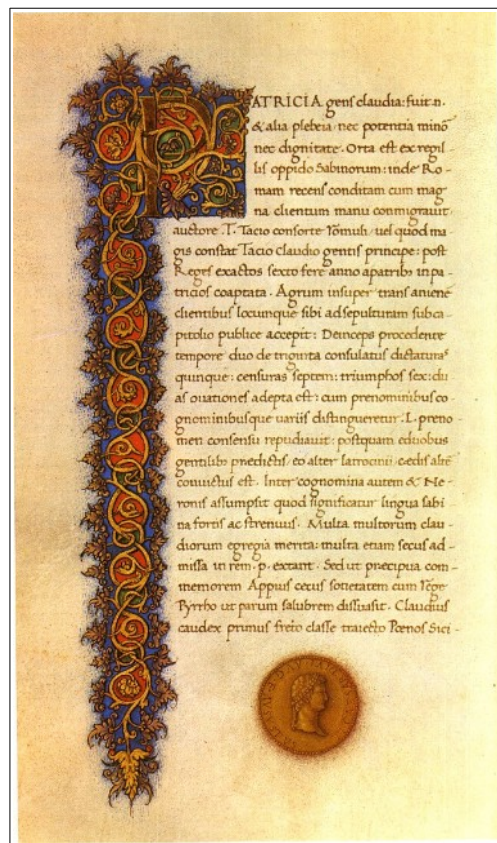 PATRICIA gens claudia: fuit.n.
& alia plebeia: nec potentia minõ
nec dignitate. Orta est ex regil-
lis oppido Sabinorum: inde Ro-
mam recens conditam cum mag
na clientum manu conmigrauit
auctore .T. Tacio consorte romuli: uel quod ma-
gis constat Tacio Claudio gentis principe: post
Reges exactos sexto fere anno apatribs inpa-
tricios coaptata. Agrum insuper trans anienẽ
clientibus locumque sibi adsepulturam subca-
pitolio publice accepit: Deinceps procedente
tempore duo de triginta consulatus dictaturas
quinque: censuras septem: triumphos sex: du
as ouationes adepta est: cum prenominibus co-
gnominibusque uariis distingueretur. L. preno
men consensu repudiauit: postquam eduobus
gentilib predictis: eo alter latrocinii: cedis altẽ
conuictus est. Inter cognomina autem & Ne-
ronis assumpsit quod significatur lingua sabi
na fortis ac strenuus. Multa multorum clau-
diorum egregia merita: multa etiam secus ad-
missa in rem .p. extant. Sed ut precipua com-
memorem Appius cecus societatem cum rege
Pyrrho ut parum salubrem dissuasit. Claudius
caudex primus freto classe traiecto Pœnos Sici-